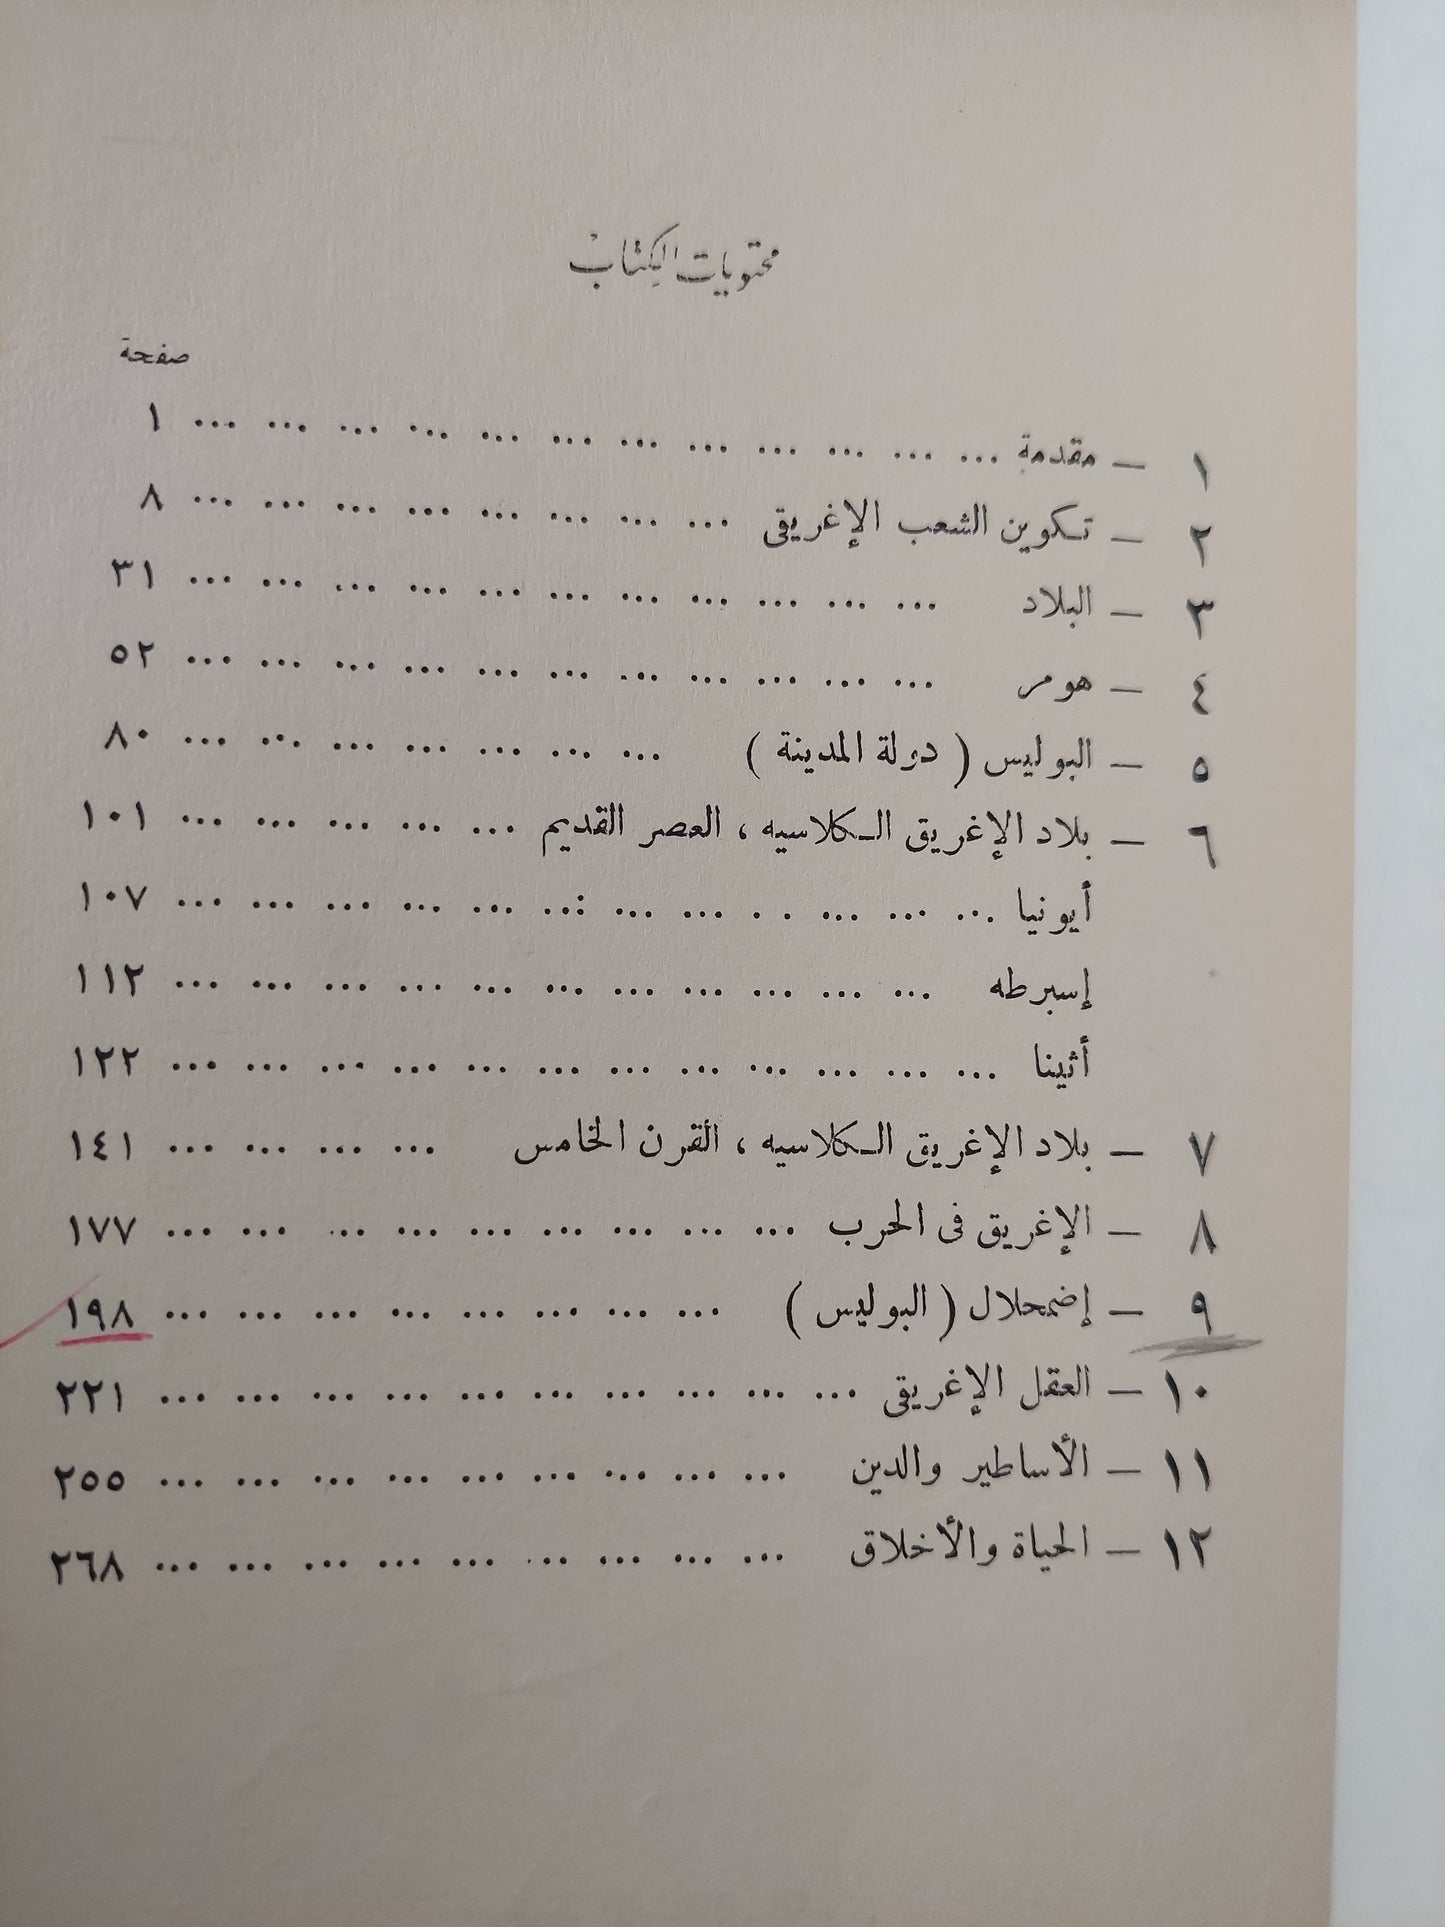 محتويات الكتاب
صفحة
١ — مقدمة ... ... ... ... ... ... ... ... ... ... ... ... ١
٢ — تكوين الشعب الإغريقى ... ... ... ... ... ... ... ... ٨
٣ — البلاد ... ... ... ... ... ... ... ... ... ... ... ٣١
٤ — هومر ... ... ... ... ... ... ... ... ... ... ... ٥٢
٥ — البوليس ( دولة المدينة ) ... ... ... ... ... ... ... ٨٠
٦ — بلاد الإغريق الكلاسيه ، العصر القديم ... ... ... ... ... ١٠١
أيونيا ... ... ... ... ... ... ... ... ... ... ... ... ١٠٧
إسبرطه ... ... ... ... ... ... ... ... ... ... ... ١١٢
أثينا ... ... ... ... ... ... ... ... ... ... ... ... ١٢٢
٧ — بلاد الإغريق الكلاسيه ، القرن الخامس ... ... ... ... ١٤١
٨ — الإغريق فى الحرب ... ... ... ... ... ... ... ... ... ١٧٧
٩ — إضمحلال ( البوليس ) ... ... ... ... ... ... ... ... ١٩٨
١٠ — العقل الإغريقى ... ... ... ... ... ... ... ... ... ... ٢٢١
١١ — الأساطير والدين ... ... ... ... ... ... ... ... ... ٢٥٥
١٢ — الحياة والأخلاق ... ... ... ... ... ... ... ... ... ٢٦٨